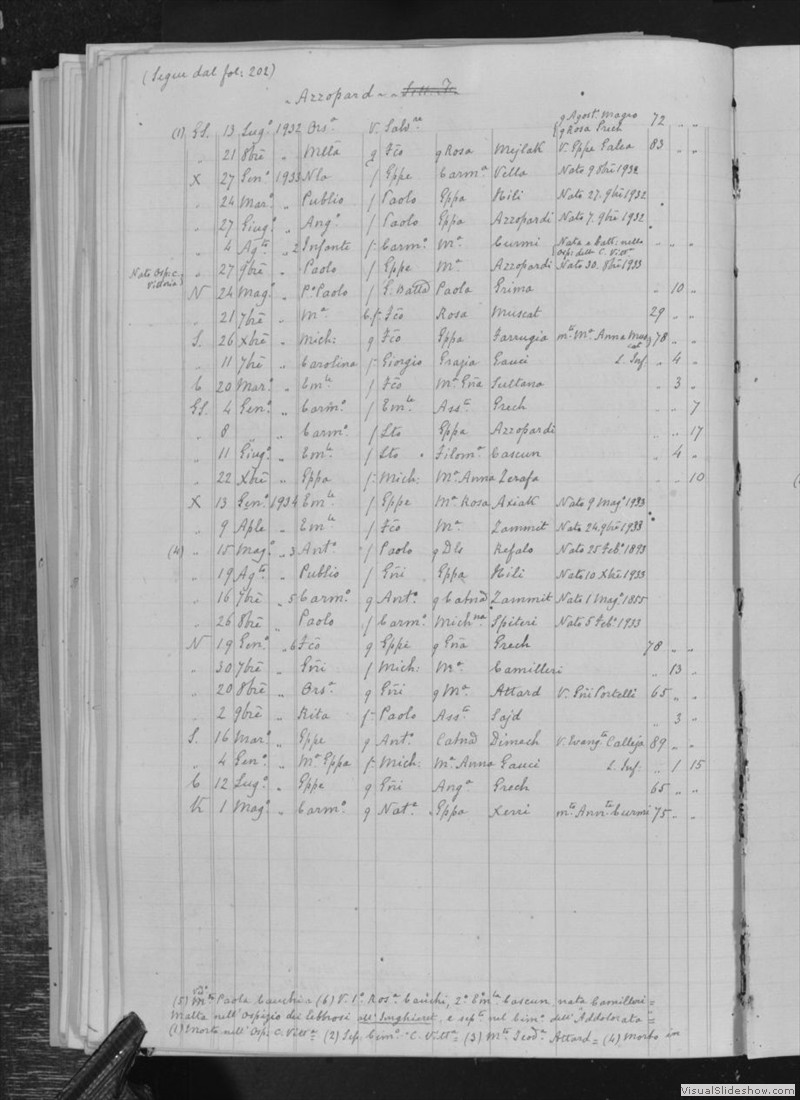 (Segue dal fol: 202)
"Azzopard"
q Agost. Magro
(1) GS. 13 Lug.o 1932 Ors.a V. Salv.re q Rosa Grech 72 " "
" 21 8bre " Melta q Fco q Rosa Mejlak V. Eppe Galea 83 " "
X 27 Gen.o 1933 Nla f Eppe Carm.a Vella Nato 9 8bre 1932
" 24 Mar.o " Publio f Paolo Eppa Mili Nato 27. 9bre 1932
" 27 Giug.o " Ang.o f Paolo Eppa Azzopardi Nato 7. 9bre 1932
" 4 Ag.to " 2 Infante f. Carm.o M.a Curmi Nata a Batt: nello
Osp: della C. Vitt.a
Nato Osp: C. Vittoria " 27 9bre " Paolo f Eppe M.a Azzopardi Nato 30. 8bre 1933
N 24 Mag.o " P.o Paolo f G. Batta Paola Grima " 10 "
" 21 7bre " M.a f. Fco Rosa Muscat 29 " "
S. 26 Xbre " Mich: q Fco Eppa Farrugia m.to M.a Anna Muscat 78 " "
" 11 7bre " Carolina f. Giorgio Grazia Gauci L. Inf " 4 "
C 20 Mar.o " Em.le f Fco M.a Gna Sultana " 3 "
GS. 4 Gen.o " Carm.o f Em.le Ass.ta Grech " " 7
" 8 " " Carm.o f Sto Eppa Azzopardi " " 17
" 11 Giug.o " Em.le f Sto Filom.a Cascun " 4 "
" 22 Xbre " Eppa f. Mich: M.a Anna Zerafa " " 10
X 13 Gen.o 1934 Em.le f Eppe M.a Rosa Axiak Nato 9 Mag.o 1933
" 9 Aple " Em.le f Fco M.a Zammit Nato 24. 9bre 1933
(4) " 15 Mag.o " 3 Ant.o f Paolo q Dla Kefalo Nato 25 Feb.o 1893
" 19 Ag.to " Publio f Gni Eppa Mili Nato 10 Xbre 1933
" 16 7bre " 5 Carm.o q Ant.o q Catna Zammit Nato 1 Mag.o 1855
" 26 8bre " Paolo f Carm.o Mich.na Spiteri Nato 5 Feb.o 1933
N 19 Gen.o " 6 Fco q Eppe q Gna Grech 78 " "
" 30 7bre " Gni f Mich: M.a Camilleri " 13 "
" 20 8bre " Ors.a q Gni q M.a Attard V. Gni Portelli 65 " "
" 2 9bre " Rita f. Paolo Ass.ta Sajd " 3 "
S. 16 Mar.o " Eppe q Ant.o Catna Dimech V. Evang.ta Calleja 89 " "
" 4 Gen.o " M.a Eppa f. Mich: M.a Anna Gauci L. Inf: " 1 15
C 12 Lug.o " Eppe q Gni Ang.a Grech 65 " "
K 1 Mag.o " Carm.o q Nat.e Eppa Xerri m.to Ann.ta Curmi 75 " "
(5) M.to Paola Cauchi = (6) V. 1.o Ros.a Cauchi, 2.o Em.la Cascun, nata Camilleri =
Malta nell'Ospizio dei lebbrosi all'Inghieret, e sep.to nel Cim.o dell'Addolorata =
(1) Morta nell'Osp: C. Vitt.a = (2) Sep. Cim.o C. Vitt.a = (3) M.to Teod.a Attard = (4) Morto in
VisualSlideshow.com